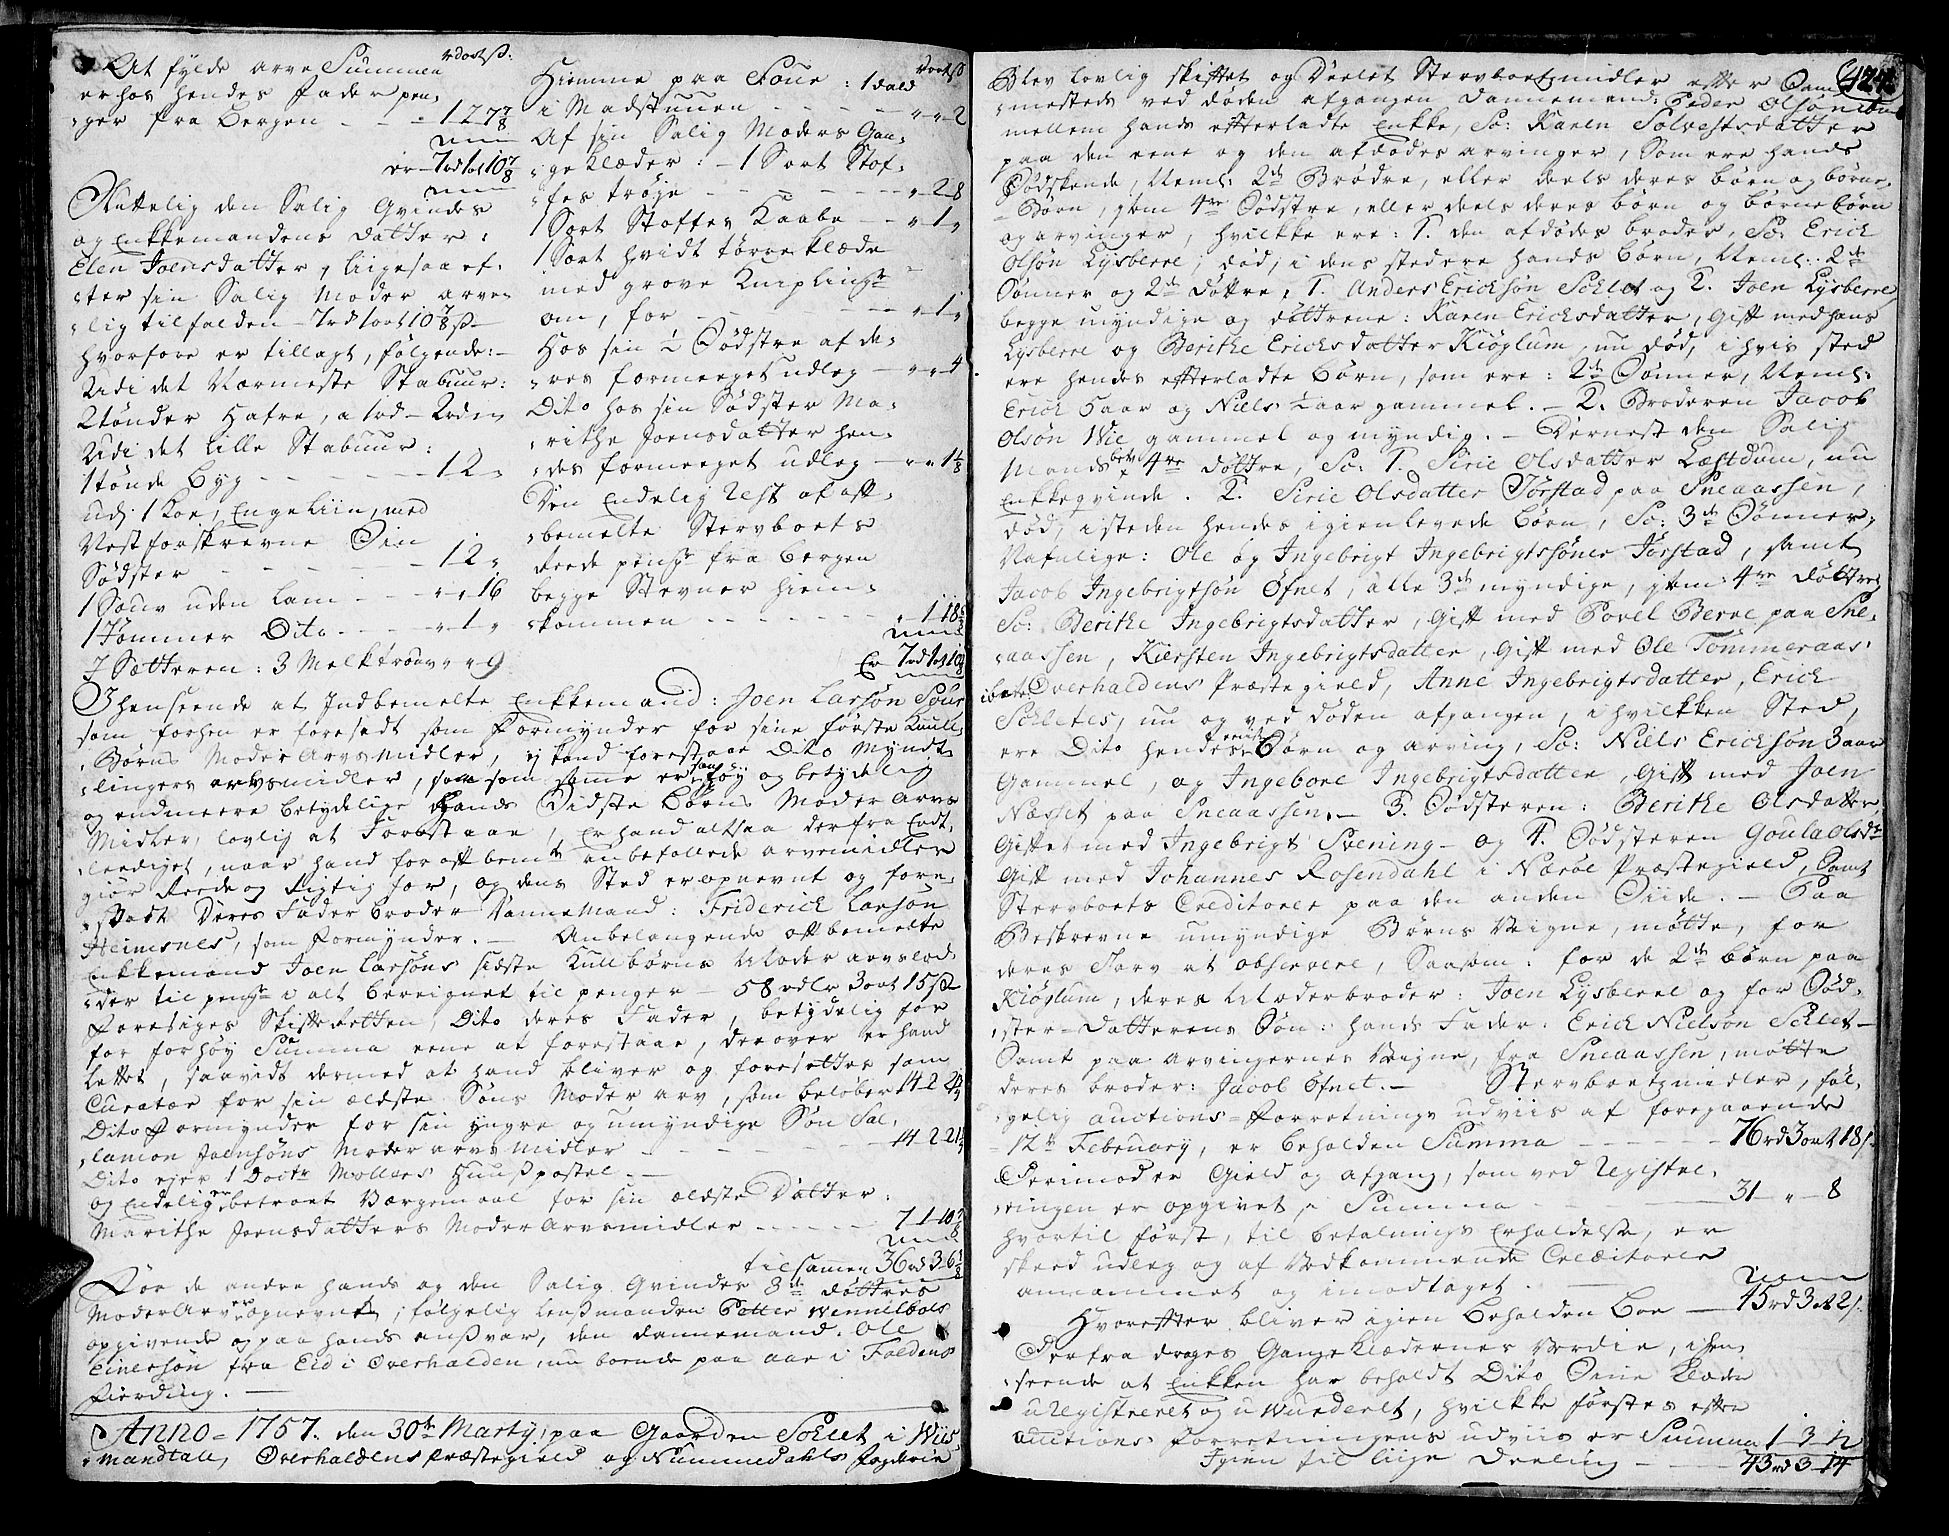 At fylde arve Summen
erhos hendes fader pen¬
ger fra bergen - - - 1 2 7 7/8
er - 7rd 1ort 10 7/8
Nættelig den Salig Qvindes
og Enkkemandens datter:
Elen Joensdatter, liigesaa ef¬
ter sin Salig Moder arve¬
lig tilfalden - 7rd 1ort 10 7/8 s -
hvorfore er tillagt, følgende: -
Udi det Nærmeste Stabuur:
2tønder Hafre, a 1rd - 2rd
Udi det lille Stabuur:
1tønde byg - - - - 1 2 "
udi 1 Koe, Engeliin, med
Næstforskrevne Sin
Sødster - - - - 1 2 "
1 Souv uden lam - - - " " 16
1 Tømmer Dito - - - " 1 "
I Sætteren: 3 Melktrouv " " 9
Hiemme paa Sour: 1 dald
i Madstuuen - - - - " " 2
Af sin Salig Moders Gan¬
ge Klæder: - 1 Sort Stof¬
fes trøye - - - - " 2 8
1 Sort Stoffes Kaabe - - " 1 "
1 Sort hvidt tørreklæde
med grove Knipling
om, for - - - - " 1 "
Hos sin 1/2 Sødstre af de¬
res formeeget udleg - " " 4
Dito hos sin Sødster Ma¬
rithe Joensdatter hen¬
des formeeget udleg - " " 1 1/8
Den Endelig Rest af oft¬
bemelte Stervboets
reede peng fra bergen
begge Stevner hiem¬
kommen - - - - " 1 18
Er 7rd 1ort 10
I henseende at Indbemelte Enkkemand: Joen Larsøn Sour
som forhen er foresadt som formynder for sine første Kuuls
Børns Moder Arvs midler, ej kand forestaae Dito Myndt¬
lingers arvsmidler, saasom samme er høy og betydelig
og endmeere betydelige hands Sidste børns Moder Arvs
Midler, lovlig at forestaae, Er hand altsaa derfra Endt¬
leediget, naar hand for oftbemt anbefallede arvemidler
giør Reede og Rigtig for, og dens Sted er opnevnt og fore¬
sadt Deres Faderbroder Dannemand: Friderich Larsøn
Heimsnes, som formynder. - Anbelangende oftbemelte
Enkkemand Joen Larsøns sidste Kullbørns Moder arvslod
der til peng i alt bereignet til penger - 58 rdlr 3 ort 15 s
foresiges Skifteretten, Dito deres Fader, betydelig for
for forhøy Summa eene at forestaae, derover er hand
lettet, saavidt dermed at hand bliver og foresettes som
Curator for sin ældste Søns Moder arv, som beløber 14 2 21
Dito formynder for sin yngre og umyndige Søn Sal¬
lamon Joensøns Moder arvs midler - - - 14 2 21
Dito ejer 1 Doctr Mollers Huuspostel -
og Endelig er betroet Værgemaal for sin ældste Datter:
Marithe Joensdatters Moder Arvsmidler - - - 7 1 10 7/8
tilsamen 36rd 3 6 1/8
For de andre hands og den Salig Qvindes 3de døttres
Moder Arv er opnevnt, følgelig lensmanden Petter Wennelbols
opgivende og paa hands ansvar, den dannemand: Ole
Einersøn fra Eid i Overhalden, nu boende paa aar i Foldens
fierding. -
Anno - 1757. den 30te Marty, paa Gaarden Schlet i Wiis
mandtall, Overhaldens Præstegield og Nummedahls fogderie
Blev lovlig skiftet og Deelet Stervboetsmidler efter Sam¬
mesteds ved døden afgangen Dannemand: Peder Olsøn
mellem hands efterladte Enkke, Sc: Karen Solvestsdatter
paa den eene og den afdødes arvinger, som ere hands
Sødskende, Neml: 2de Brødre, eller deels deres børn og børne
Børn, item 4re Sødstre, eller deels deres børn og børnebørn
og arvinger, hvilkke ere: 1. den afdødes broder, Sc: Erich
Olsøn Lysberre, død, i dens stedere hands børn, Neml: 2de
Sønner og 2de døttre, 1. Anders Erichsøn Schlet og 2. Joen Lysberre
begge myndige og døttrene: Karen Erichsdatter, Gift med hans
Lysberre og Berithe Erichsdatter Kiøglum, nu død, i hvis sted
ere hendes efterladte børn, som ere: 2de Sønner, Neml:
Erich 5 aar og Niels 1/2 aar gammel. - 2. Broderen Jacob
Olsøn Wie gammel og myndig. - Dernest den Salig
Mands 4re døttre, Sc: 1. Sirie Olsdatter Læstdum, nu
Enkkeqvinde. 2. Sirie Olsdatter Jørstad paa Sneaassen,
død, i steden hendes igienlevede børn, Sc: 3de Sønner,
Nafnlige: Ole og Ingebrigt Ingebrigtssøner Jørstad, samt
Jacob Ingebrigtsøn Øfnet, alle 3de myndige, item 4re døttre
Sc: Berithe Ingebrigtsdatter, Gift med Povel Berre paa Sne¬
aassen, Kiersten Ingebrigtsdatter, Gift med Ole Tømmeraas
ibidt Overhaldens Præstegield, Anne Ingebrigtsdatter, Erich
Schletes, nu og ved døden afgangen, i hvilkken Sted,
ere Dito hendes børn og arving, Sc: Niels Erichsøn 3 aar
Gammel, og Ingebore Ingebrigtsdatter, Gift med Joen
Næsset paa Sneaassen. - 3. Sødsteren: Berithe Olsdatter
Giftet med Ingebrigt Svening - og 4. Sødsteren Goula Olsdtr
Gift med Johannes Rosendahl i Nærøe Præstegield, Samt
Stervboets Creditorer paa den anden Siide. - Paa
Beskrevne umyndige Børns Veigne, møtte, for
deres Tarv at observere, Saasom: for de 2de børn paa
Kiøglum, deres Moderbroder: Joen Lysberre og for Sød¬
ster - Datterens Søn: hands Fader: Erich Nielsøn Schlet -
Samt paa arvingernes Veigne, fra Sneaassen, møtte
deres broder: Jacob Øfnet. - Stervboetsmidler, føl¬
gelig auctions - forretnings udviis af foregaaende
12te February, er beholden Summa - - - 76rd 3ort 18s
Derimoder Gield og afgang, som ved Registre¬
ringen er opgivet, Summa - - - 31 " 8
hvortil først, til betalnings Erholdelse, er
skeed udleg og af Vedkommende Creditorer
annammet og imodtaget. -
Hvorefter bliver igien beholden boe - 45rd 3ort 2s
Derfra drages Gangeklædernes Verdie, i hen¬
seende at Enkken har beholdt Dito Sine Klæder
uRegistreret og uWurderet, hvilkke førstes efter
auctions forretningens udviis er Summa 1 - 3 - 12
Igien til liige Deeling - - - 43rd 3 - 14